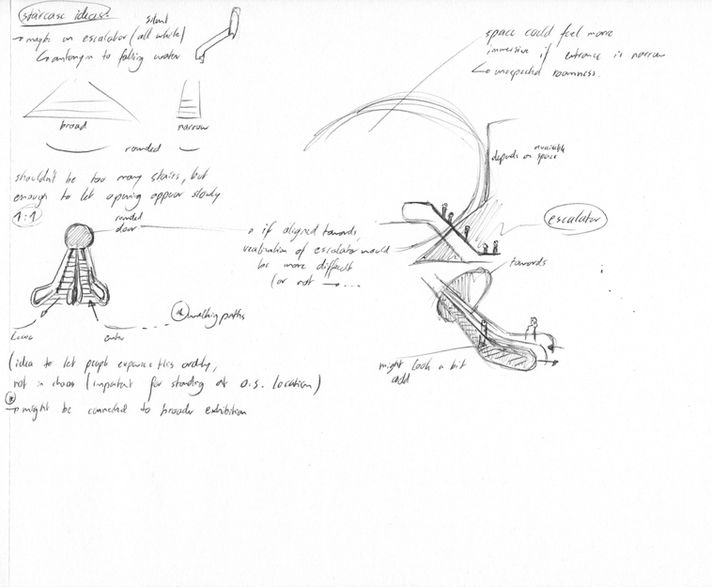 staircase ideas:
silent
→ maybe an escalator (all white)
↳ antonym to falling water
broad
narrow
rounded
shouldn't be too many stairs, but
enough to let opening appear slowly
1:1
rounded
door
leave
enter
walking paths
(idea to let people experience this orderly,
not in chaos (important for standing at o.s. location)
→ might be connected to broader exhibition
space could feel more
immersive if entrance is narrow
↳ unexpected roominess.
available
depends on space
escalator
→ if aligned towards,
realization of escalator would
be more difficult
(or not → ...
towards
might look a bit
odd